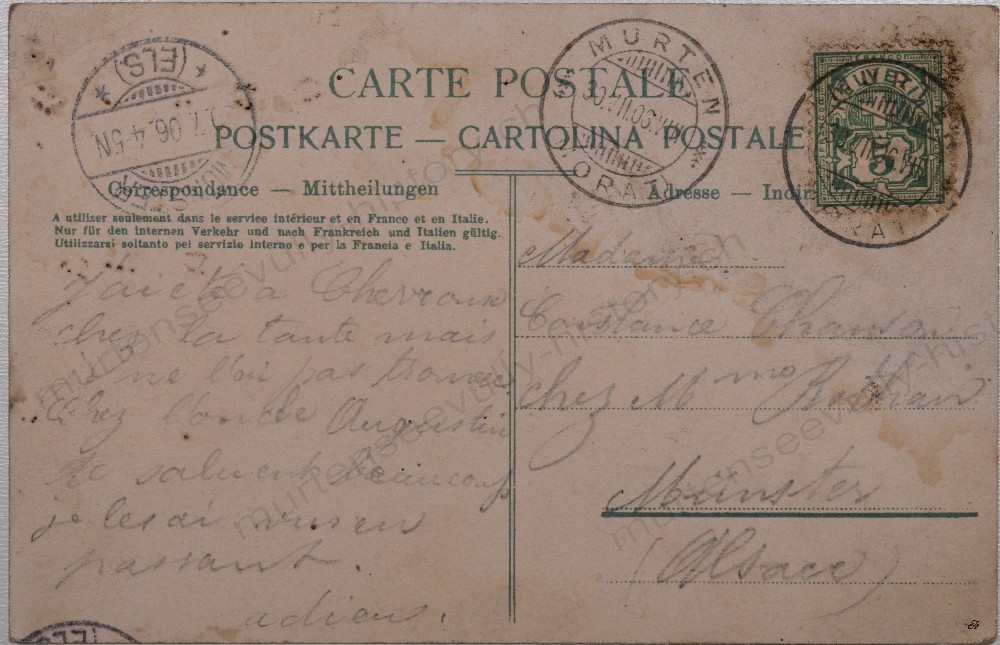 CARTE POSTALE
POSTKARTE — CARTOLINA POSTALE
Correspondance — Mittheilungen
A utiliser seulement dans le service intérieur et en France et en Italie.
Nur für den internen Verkehr und nach Frankreich und Italien gültig.
Utilizzarsi soltanto pei servizio interno e per la Francia e Italia.
J'ai été à Chevroux
chez la tante mais
ne l'ai pas trouvée
Chez l'oncle Augustin
te saluent beaucoup
je les ai vus en
passant.
adieu.
Adresse — Indiri
Madame
Constance
chez Mme
Münster
(Alsace)
MURTEN
MORAT
(ELS.)
7.06.4-5N
5
murtenseevully-history.ch
murtenseevully-history.ch
murtenseevully-history.ch